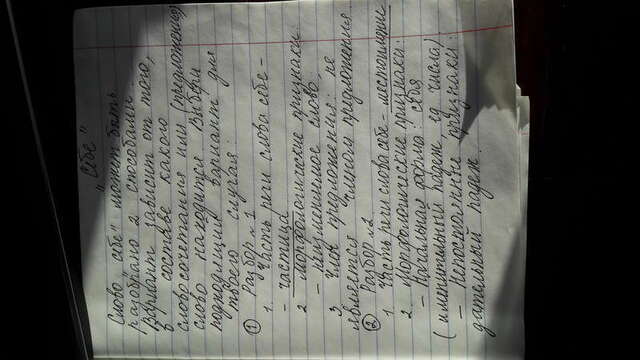 "Себе"
Слово "себе" может быть
разобрано 2 способами.
Вариант зависит от того,
в составе какого
словосочетания или (предложения)
слово находится. Выбери
подходящий вариант для
твоего случая:
① Разбор №1
1. Часть речи слова себе -
- частица
2 Морфологические признаки:
- Неизменяемое слово,
3 Член предложения: не
является членом предложения
② Разбор №2
1 Часть речи слова себе - местоимение
2 Морфологические признаки:
- Начальная форма: себя
(именительный падеж ед числа)
- Непостоянные признаки:
дательный падеж.